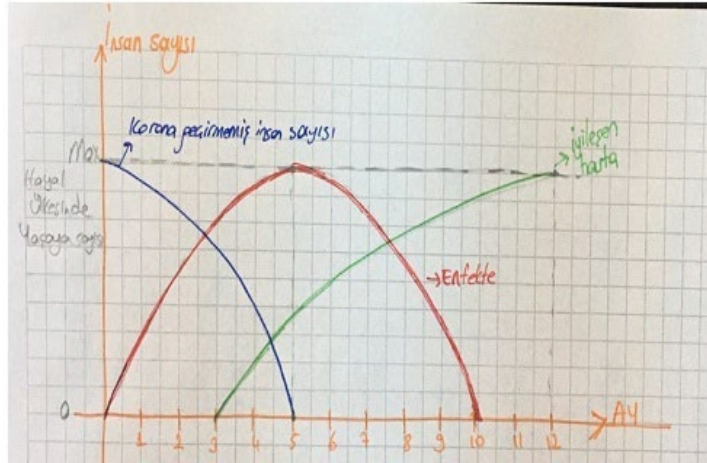 İnsan sayısı
Korona geçirmemiş insan sayısı
Max
Hayal
Ülkesinde
Yaşaya sayı
iyileşen
hasta
→Enfekte
0
1 2 3 4 5 6 7 8 9 10 11 12
Ay